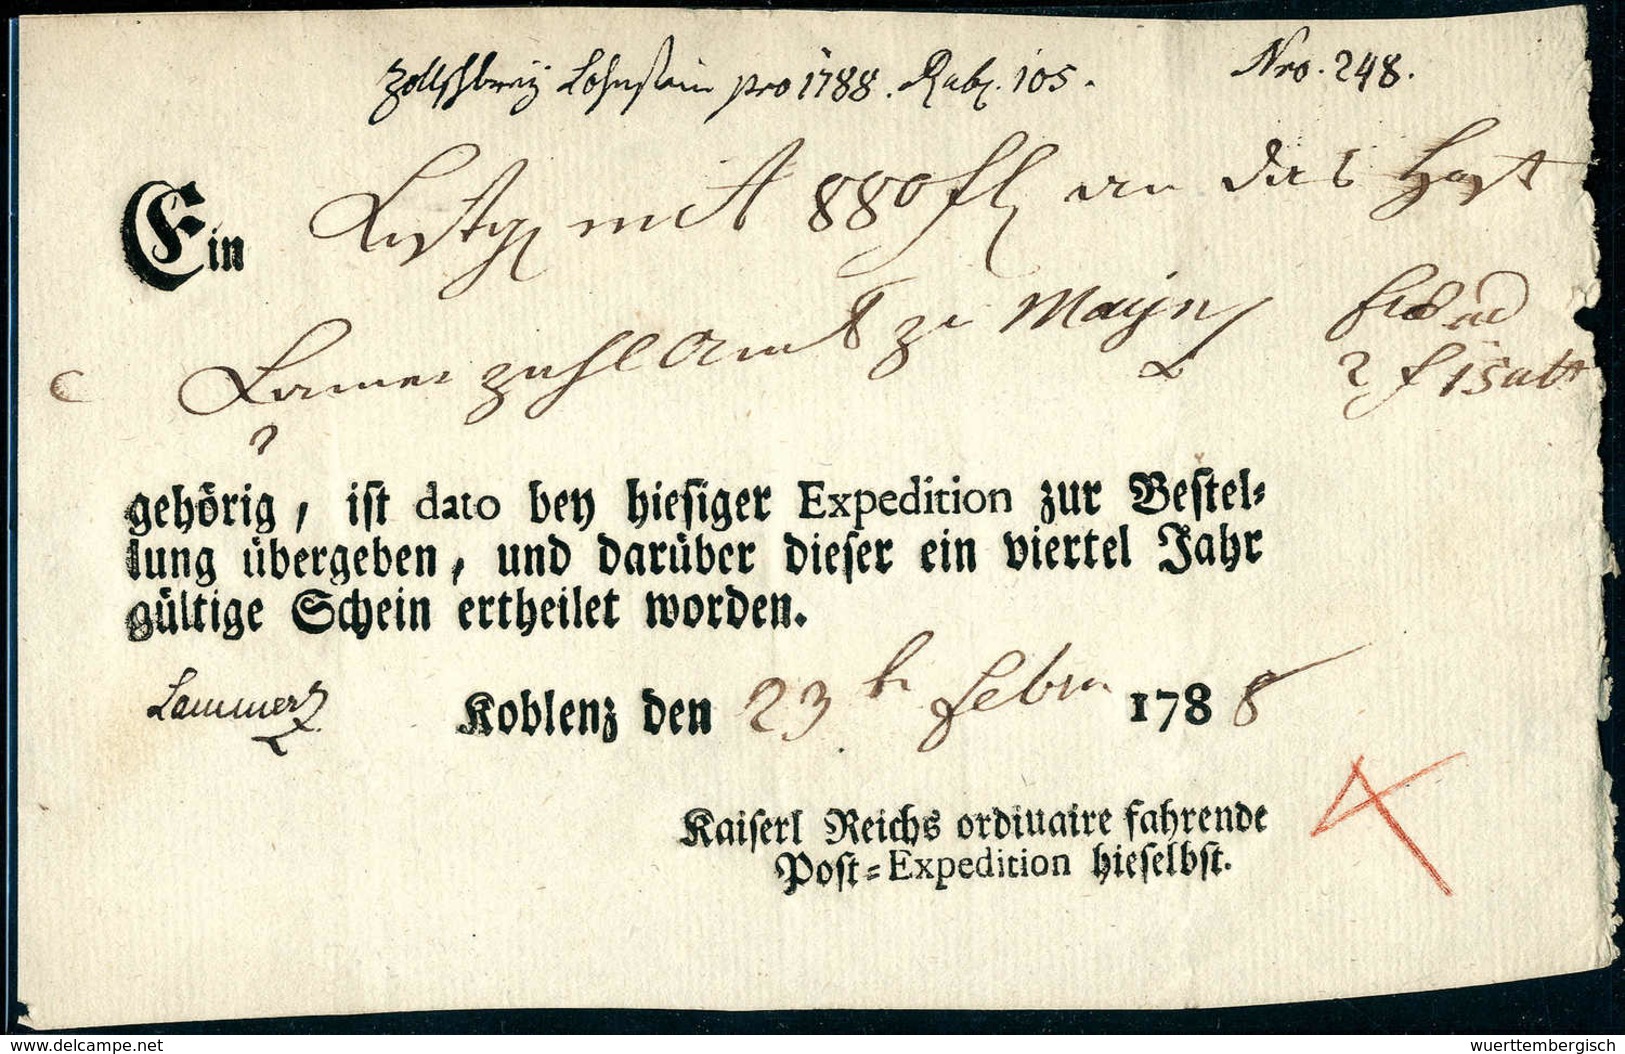 Zollschbrey Lohnstein pro 1788. Rub. 105. Nro. 248.
Ein Kistgen mit 880 fl an das Hoff
Camer zahl Amt zu Maynz
2 f 15
gehörig, ist dato bey hiesiger Expedition zur Bestel-
lung übergeben, und darüber dieser ein viertel Jahr
gültige Schein ertheilet worden.
Lammerz Koblenz den 23th Febru 1788
Kaiserl Reichs ordinaire fahrende
Post-Expedition hieselbst.
delcampe.net
wuerttembergisch